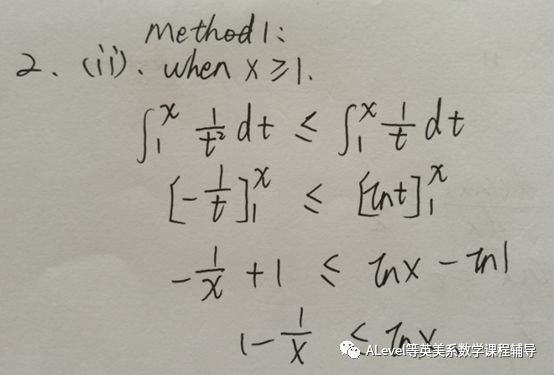 method 1:
2. (ii). when x ≥ 1.
∫₁ˣ 1/t² dt ≤ ∫₁ˣ 1/t dt
[-1/t]₁ˣ ≤ [ln t]₁ˣ
-1/x + 1 ≤ ln x - ln 1
1 - 1/x ≤ ln x
ALevel等英美系数学课程辅导